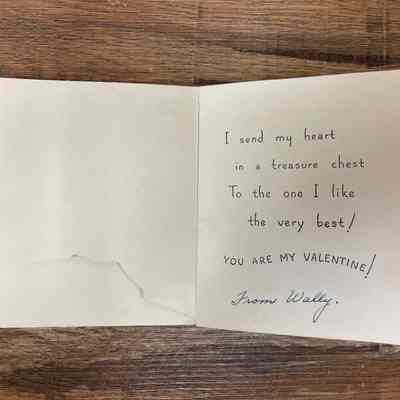 I send my heart
in a treasure chest
To the one I like
the very best!
YOU ARE MY VALENTINE!
From Wally.